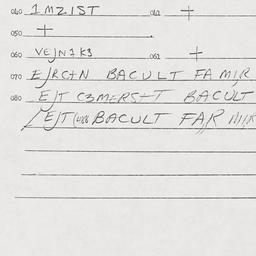 040 1MZIST 041 +
050 +
060 VEJN1K3 061 +
070 EJRCTN BACULT FA MIR
080 EJT C3MERSTT BACULT
EJT BACULT FAR